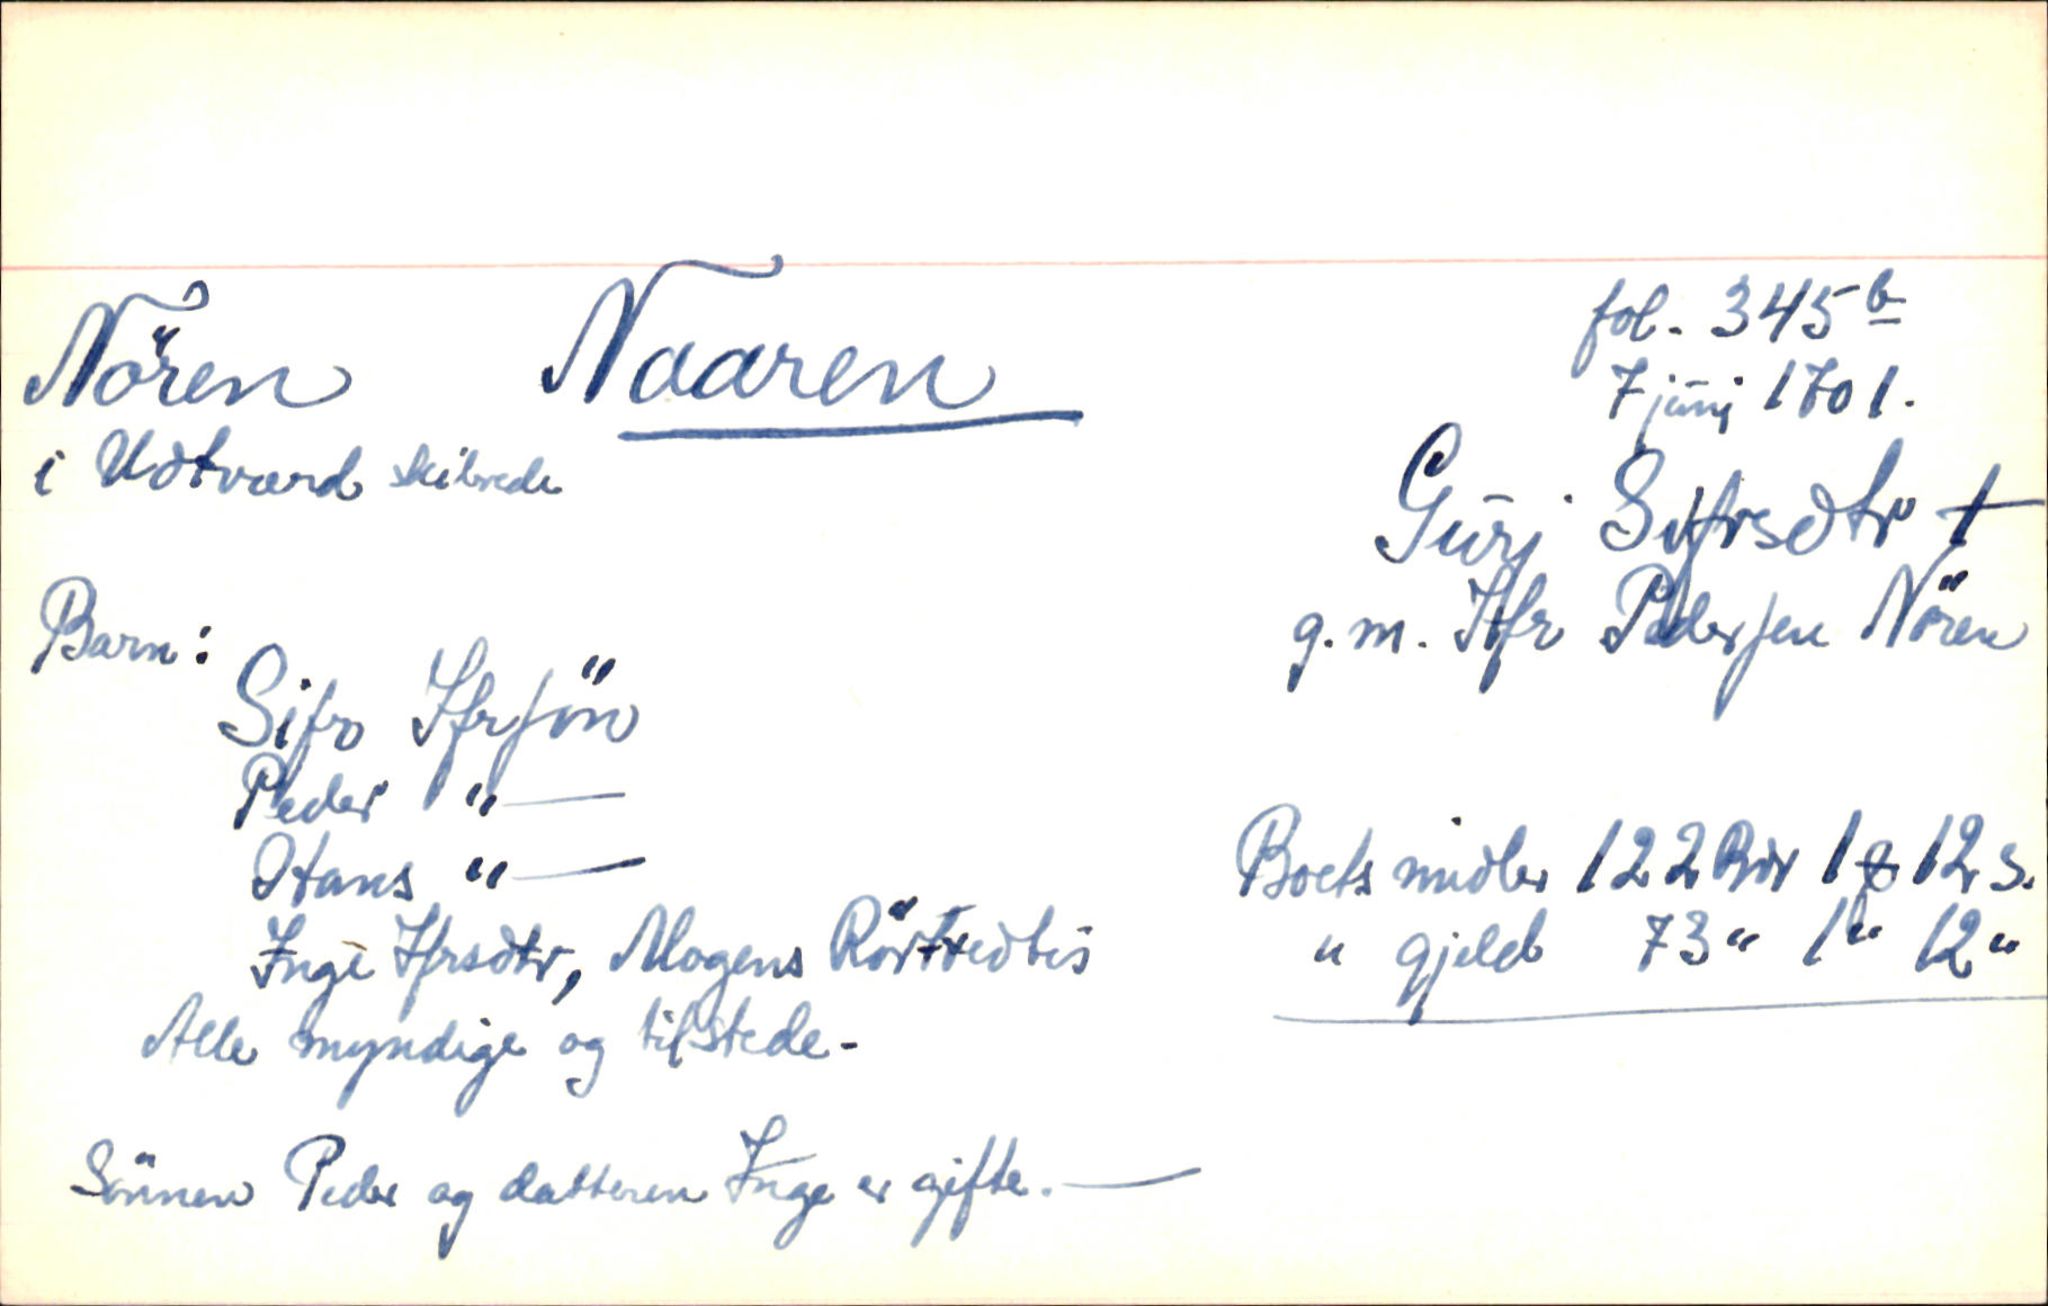 Nören Naaren
i Udtværd skibrede
fol. 345 b
7 junj 1701.
Gurj Sifrsdtr †
g. m. Ifr Pedersen Nören
Barn:
Sifr Ifrsön
Peder " —
Hans " —
Inge Ifrsdtr, Mogens
Alle myndige og tilstede.
Boets midler 122 Rdr 1 12 s.
" gjeld 73 " 1 " 12 "
Sönnen Peder og datteren Inge er gifte. —